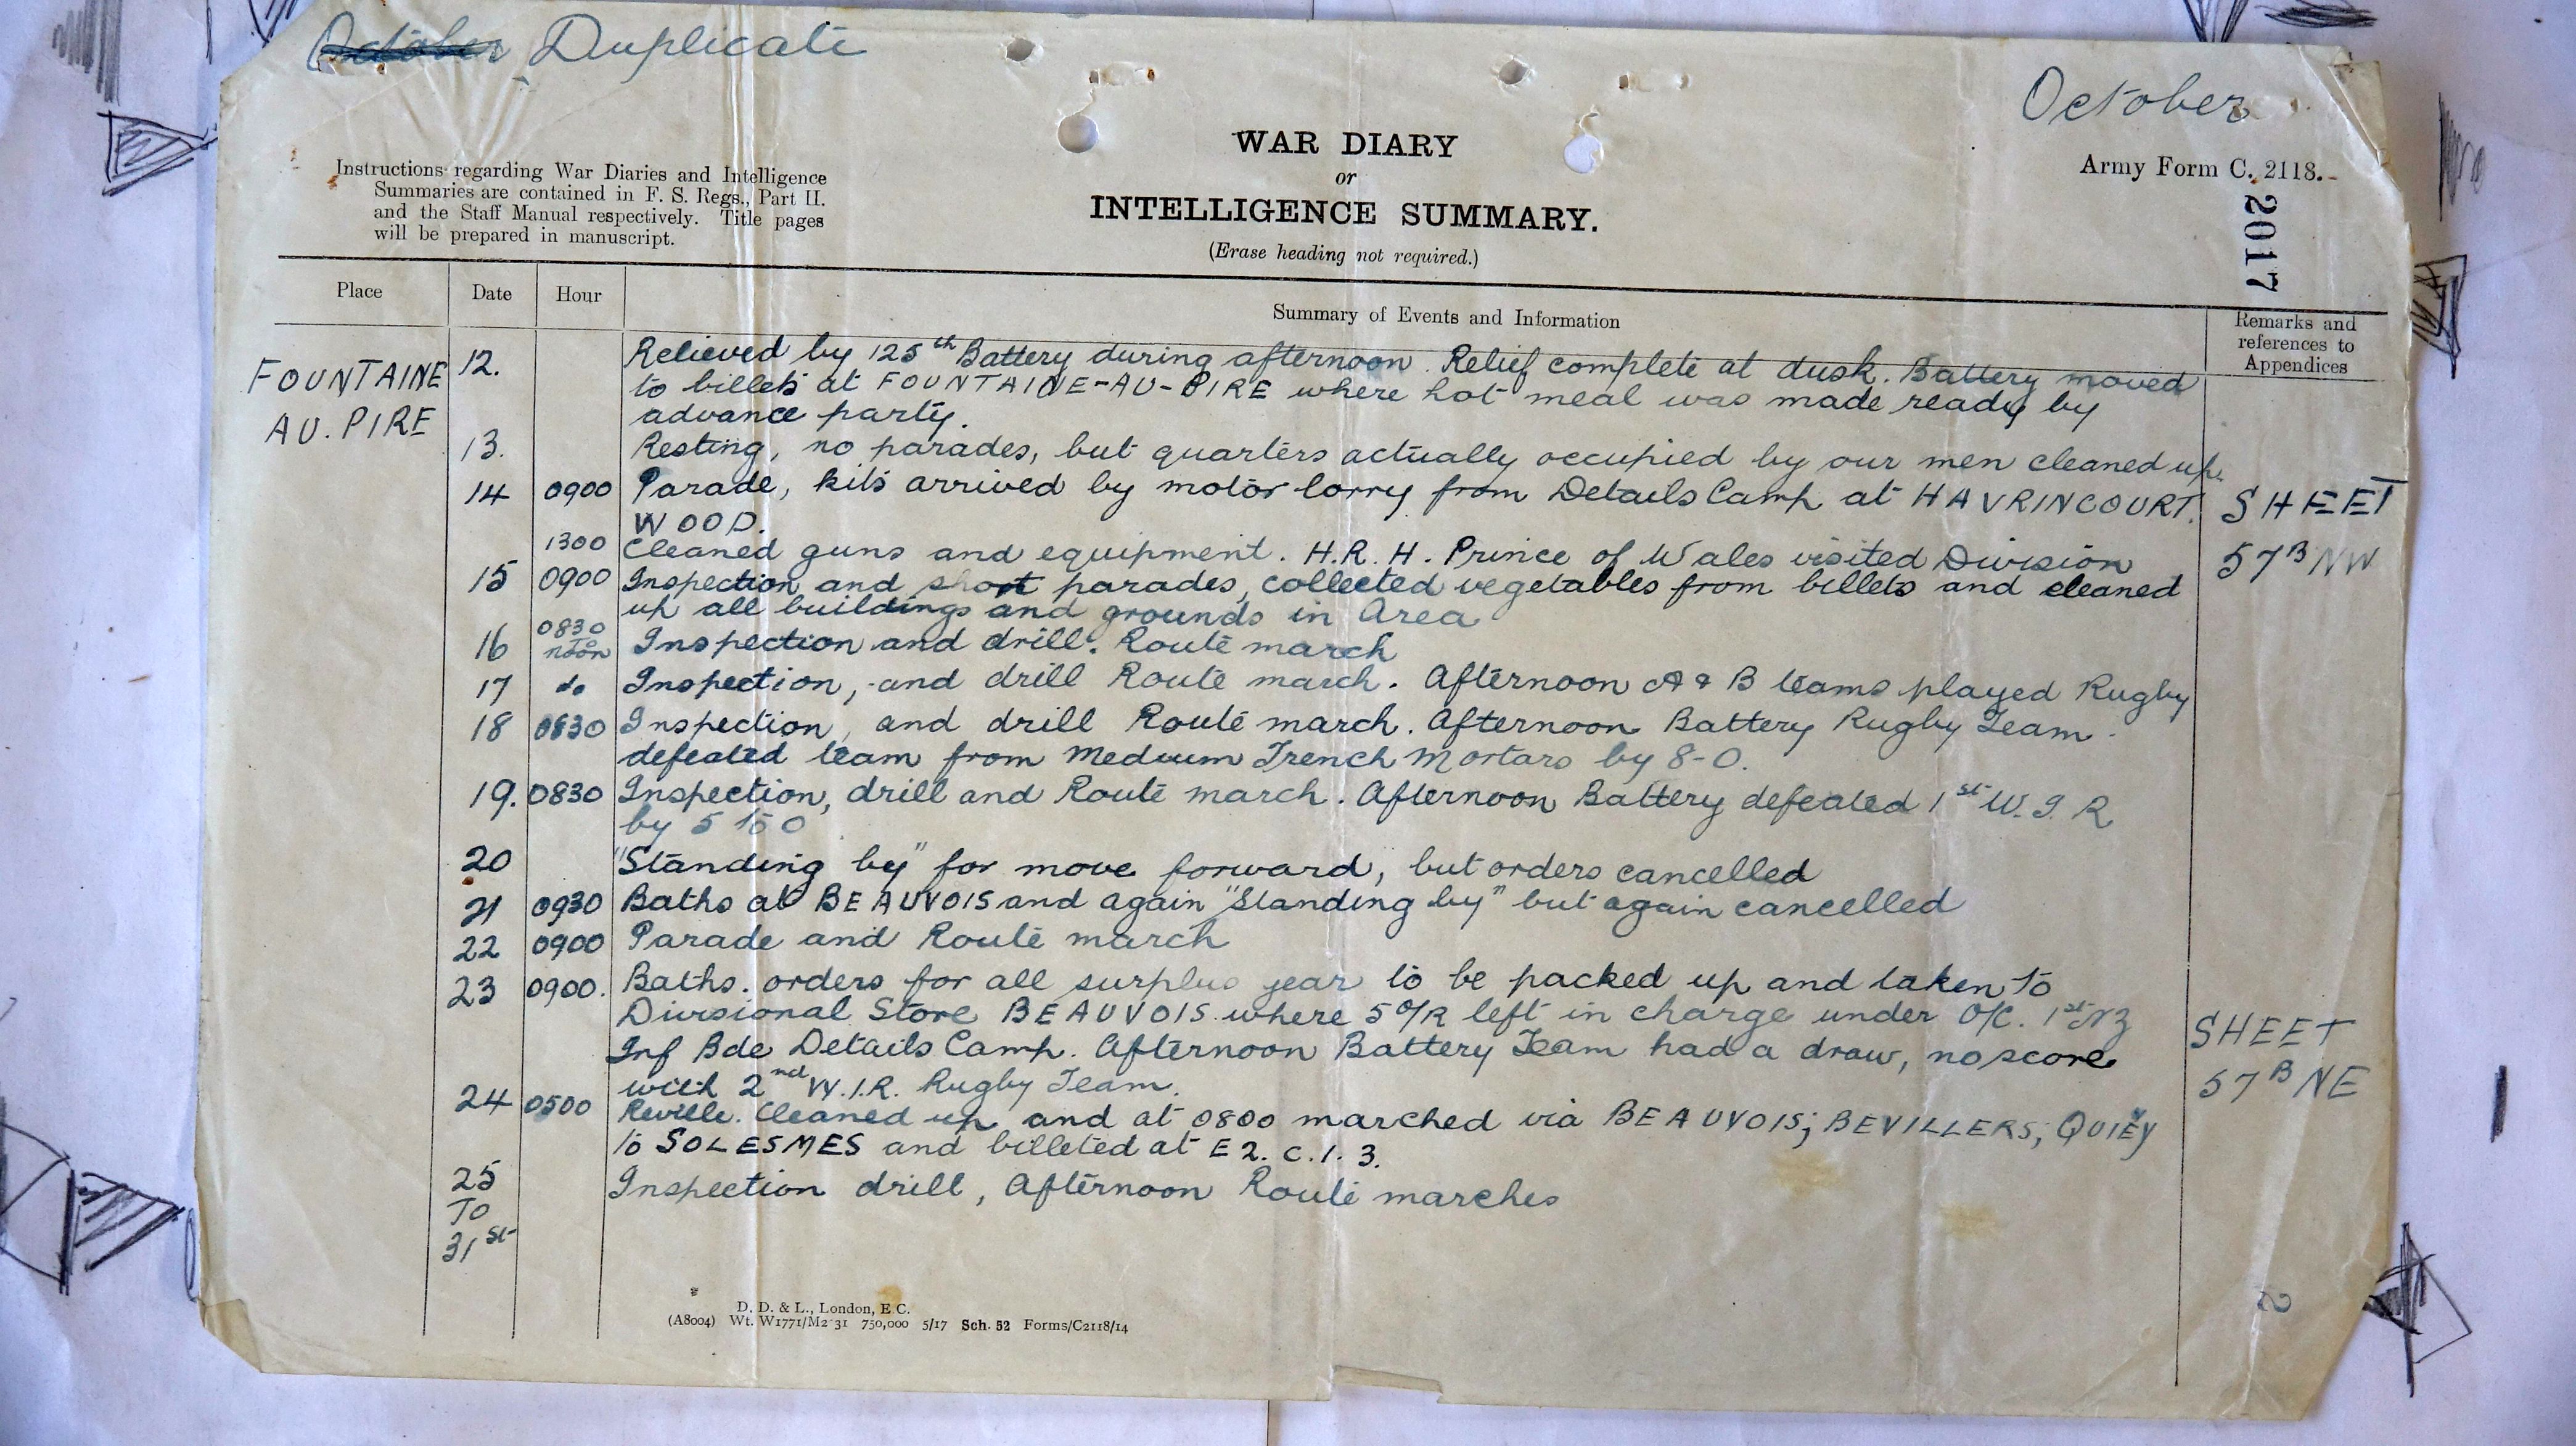 October Duplicate
October
WAR DIARY
or
INTELLIGENCE SUMMARY.
(Erase heading not required.)
Instructions regarding War Diaries and Intelligence
Summaries are contained in F. S. Regs., Part II.
and the Staff Manual respectively. Title pages
will be prepared in manuscript.
Army Form C. 2118.
2017
Place Date Hour Summary of Events and Information Remarks and
references to
Appendices
FOUNTAINE
AU. PIRE
12. Relieved by 125th Battery during afternoon. Relief complete at dusk. Battery moved
to billets at FOUNTAINE-AU-PIRE where hot meal was made ready by
advance party.
13. Resting, no parades, but quarters actually occupied by our men cleaned up.
14 0900 Parade, kits arrived by motor lorry from Details Camp at HAVRINCOURT. SHEET
WOOD.
1300 Cleaned guns and equipment. H.R.H. Prince of Wales visited Division 57B NW
15 0900 Inspection and short parades, collected vegetables from billets and cleaned
up all buildings and grounds in Area
16 0830 To noon Inspection and drill. Route march
17 do Inspection, and drill Route march. Afternoon A & B teams played Rugby
18 0830 Inspection, and drill Route march. Afternoon Battery Rugby Team
defeated team from Medium Trench Mortars by 8-0.
19. 0830 Inspection, drill and Route march. Afternoon Battery defeated 1st W. I. R
by 5 to 0
20 "Standing by" for move forward, but orders cancelled
21 0930 Baths at BEAUVOIS and again "Standing by" but again cancelled
22 0900 Parade and Route march
23 0900. Baths. orders for all surplus gear to be packed up and taken to
Divisional Store BEAUVOIS where 5 O/R left in charge under O/C. 1st NZ
Inf Bde Details Camp. Afternoon Battery Team had a draw, no score SHEET
with 2nd W.I.R. Rugby Team. 57B NE
24 0500 Reville. Cleaned up and at 0800 marched via BEAUVOIS; BEVILLERS; QUIEVY
to SOLESMES and billeted at E2. C. 1. 3.
25 To 31st Inspection drill, Afternoon Route marches
D. D. & L., London, E.C.
(A8004) Wt. W1771/M2 31 750,000 5/17 Sch. 52 Forms/C2118/14
2